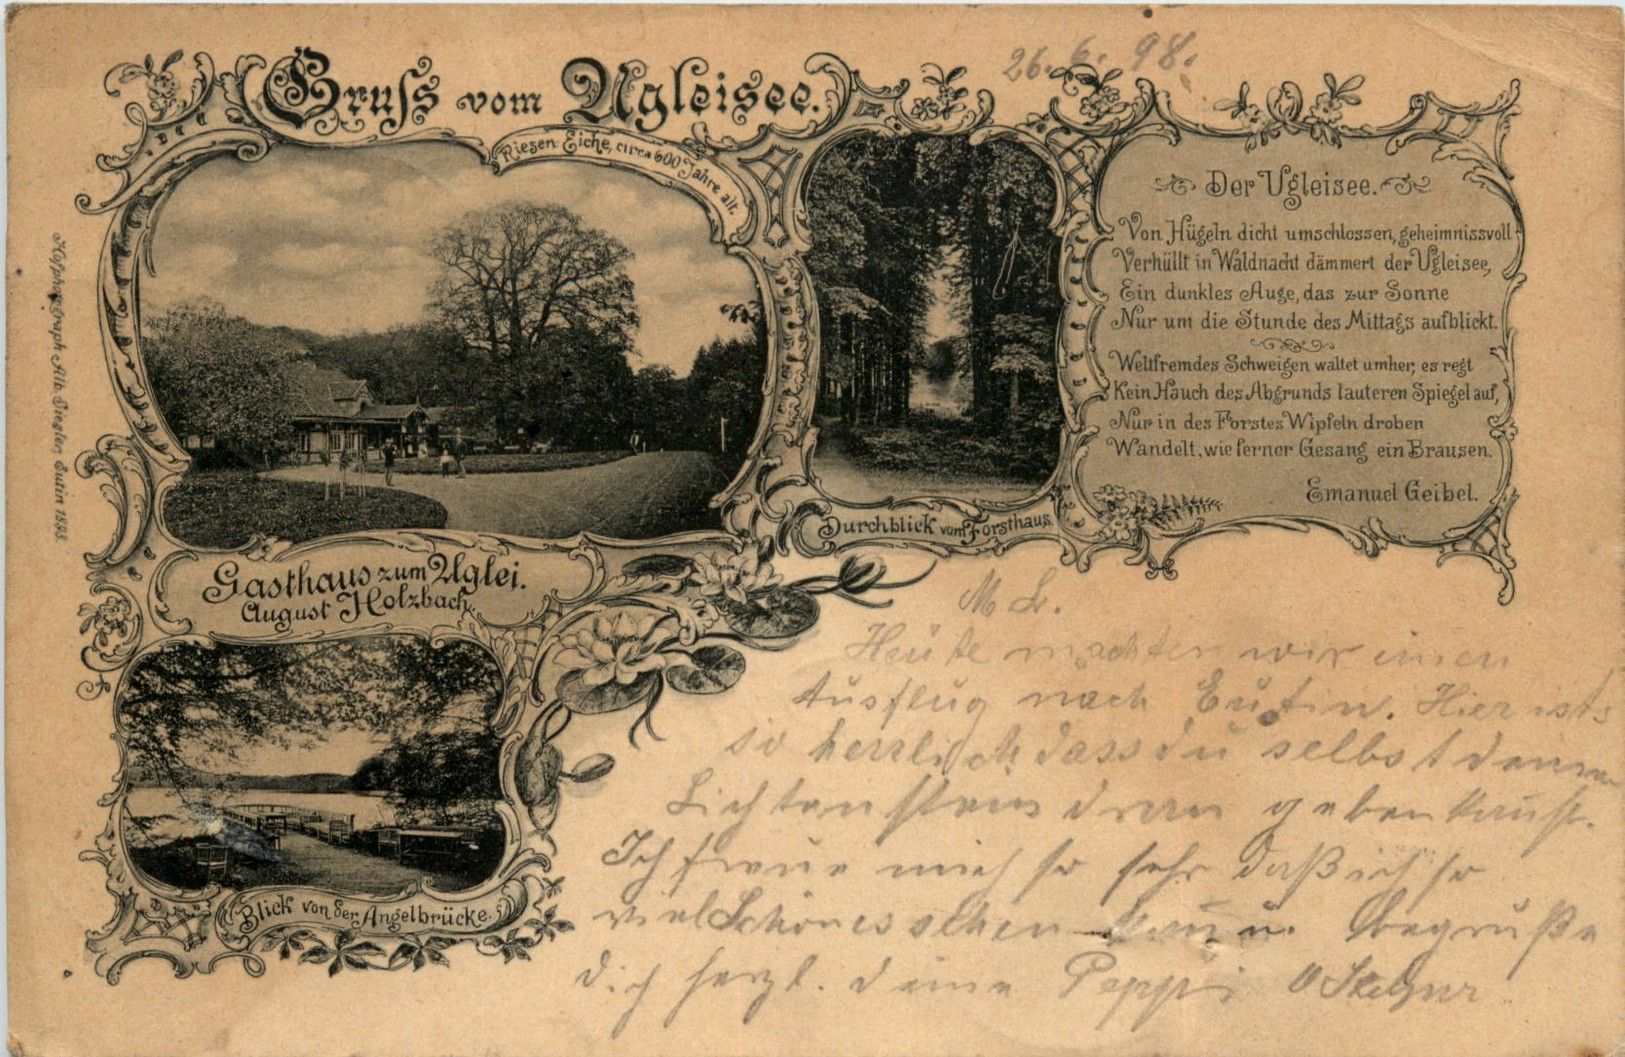 26. 6. 98.
Gruss vom Ugleisee.
Riesen-Eiche, circa 600 Jahre alt.
Der Ugleisee.
Von Hügeln dicht umschlossen, geheimnissvoll
Verhüllt in Waldnacht dämmert der Ugleisee,
Ein dunkles Auge, das zur Sonne
Nur um die Stunde des Mittags aufblickt.
Weltfremdes Schweigen waltet umher, es regt
Kein Hauch des Abgrunds lauteren Spiegel auf,
Nur in des Forstes Wipfeln droben
Wandelt, wie ferner Gesang ein Brausen.
Emanuel Geibel.
Durchblick vom Forsthaus.
Gasthaus zum Uglei.
August Holzbach.
Blick von der Angelbrücke.
Hofphotograph Alb. Giegler, Eutin 1898.
M L.
Heute machten wir einen
Ausflug nach Eutin. Hier ist
so herrlich dass du selbst deinen
Lichtenstein dran geben kannst.
Ich freue mich so sehr daß ich so
viel Schönes sehen kann u. begrüße
dich herzl. deine Peppi